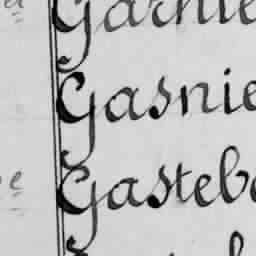 Garnie
Gasnie
Gasteb